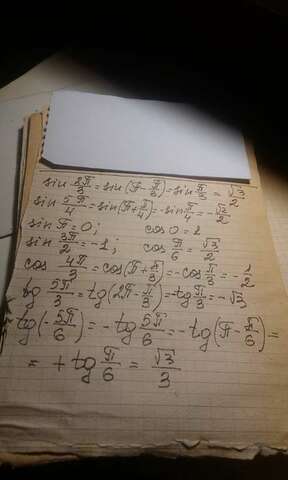 sin 2π/3 = sin(π - π/3) = sin π/3 = √3/2
sin 5π/4 = sin(π + π/4) = -sin π/4 = -√2/2
sin π = 0; cos 0 = 1
sin 3π/2 = -1; cos π/6 = √3/2
cos 4π/3 = cos(π + π/3) = -cos π/3 = -1/2
tg 5π/3 = tg(2π - π/3) = -tg π/3 = -√3,
tg(-5π/6) = -tg 5π/6 = -tg(π - π/6) =
= + tg π/6 = √3/3